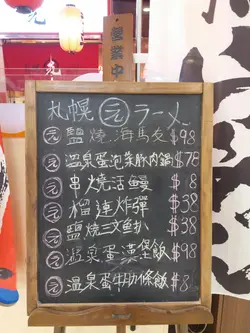 営業中
札幌 元 ラーメン
元 鹽燒海馬友 $98
元 溫泉蛋泡菜豚肉鍋 $78
元 串燒活鰻 $8
元 榴連炸彈 $38
元 鹽燒三文魚扒 $38
元 溫泉蛋漢堡飯 $98
元 溫泉蛋牛肋條飯 $8